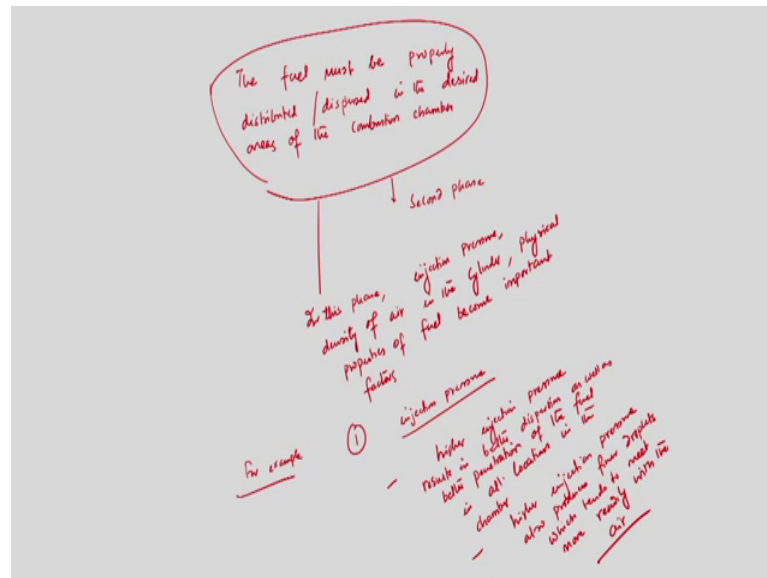 The fuel must be properly
distributed / dispersed in the desired
areas of the combustion chamber
Second phase
In this phase, injection pressure,
density of air in the cylinder, physical
properties of fuel become important
factors
For example
① injection pressure
- higher injection pressure
results in better dispersion as well as
better penetration of the fuel
in all locations in the
chamber
- higher injection pressure
also produces finer droplets
which tends to meet
more readily with the
air